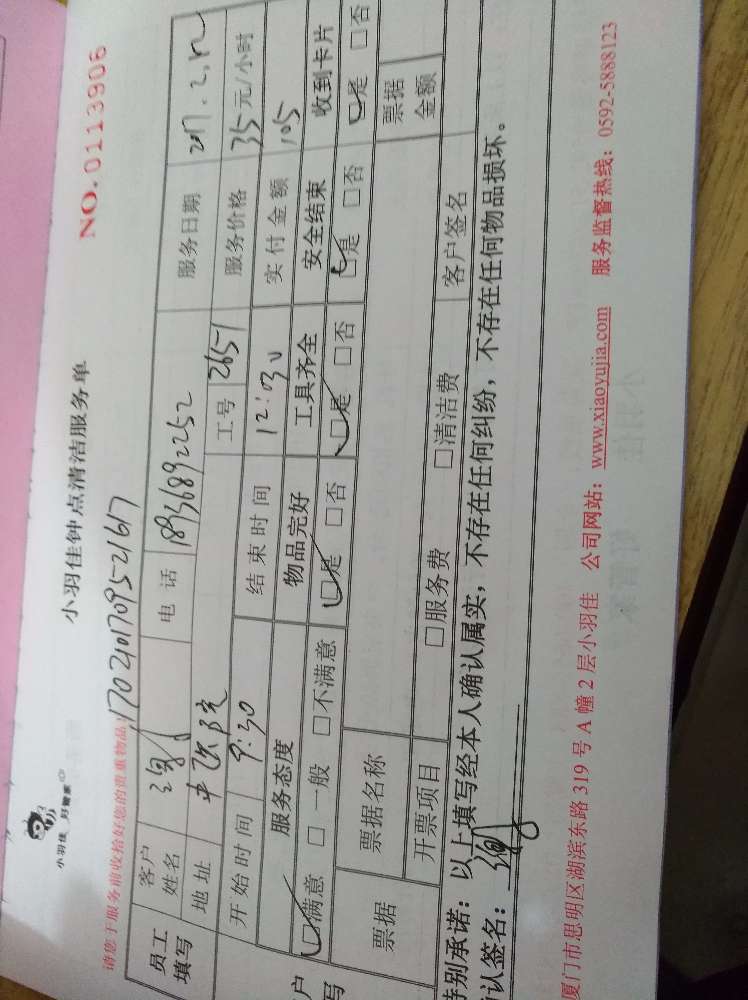 小羽佳 好管家
小羽佳钟点清洁服务单
NO.0113906
请您于服务前收拾好您的贵重物品!
17021017095 21617
员工填写 客户姓名 电话 18936892252 服务日期 2017.2.12
地址 工号 2651 服务价格 35元/小时
开始时间 9:30 结束时间 12:30 实付金额 105
服务态度 物品完好 工具齐全 安全结束 收到卡片
□满意 □一般 □不满意 □是 □否 □是 □否 □是 □否 □是 □否
票据 票据名称 票据金额
开票项目 □服务费 □清洁费 客户签名
特别承诺：以上填写经本人确认属实，不存在任何纠纷，不存在任何物品损坏。
确认签名：
厦门市思明区湖滨东路319号A幢2层小羽佳 公司网站：www.xiaoyujia.com 服务监督热线：0592-5888123